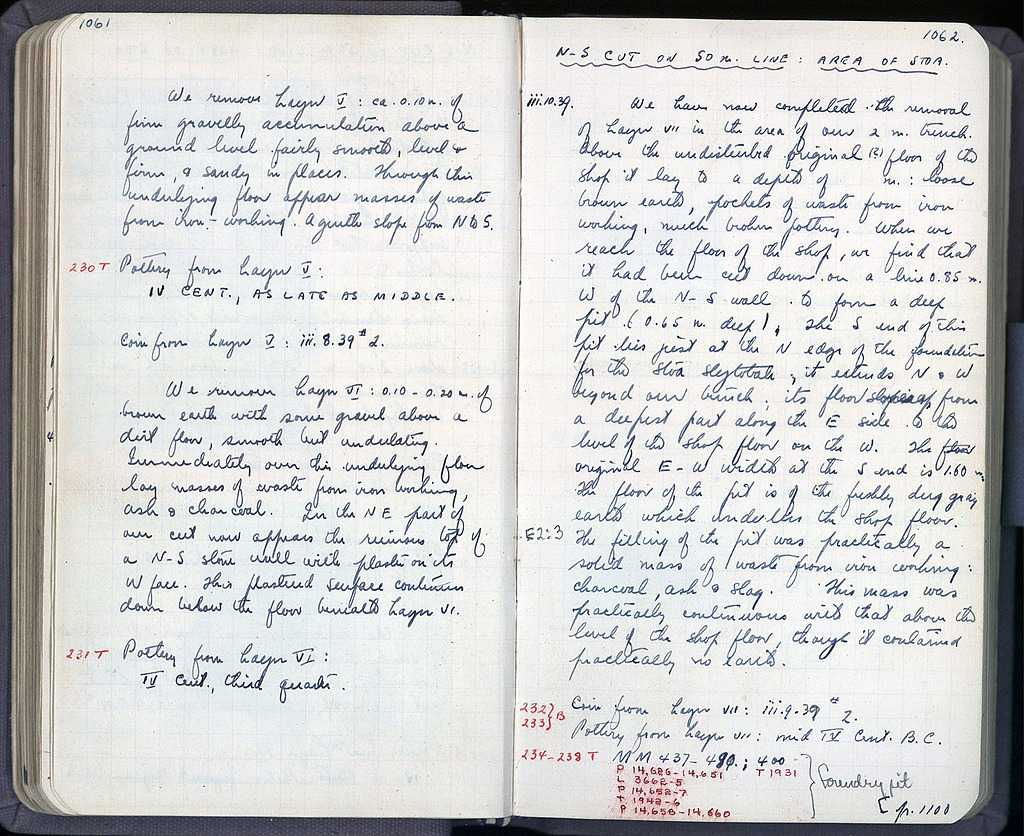 1061
We remove Layer V : ca. 0.10 m. of
firm gravelly accumulation above a
ground level fairly smooth, level &
firm, & sandy in places. Through this
underlying floor appear masses of waste
from iron-working. A gentle slope from N to S.
230 T Pottery from Layer V :
IV CENT., AS LATE AS MIDDLE.
Coin from Layer V : iii.8.39 # 2.
We remove Layer VI : 0.10 - 0.20 m. of
brown earth with some gravel above a
dirt floor, smooth but undulating.
Immediately over this underlying floor
lay masses of waste from iron working,
ash & charcoal. In the NE part of
our cut now appears the ruinous top of
a N-S stone wall with plaster on its
W face. This plastered surface continues
down below the floor beneath Layer VI.
231 T Pottery from Layer VI :
IV Cent., third quarter.
1062.
N-S CUT ON 50 m. LINE : AREA OF STOA.
iii.10.39. We have now completed the removal
of Layer VII in the area of our 2 m. trench.
Above the undisturbed original (?) floor of the
shop it lay to a depth of m. : loose
brown earth, pockets of waste from iron
working, much broken pottery. When we
reach the floor of the shop, we find that
it had been cut down on a line 0.85 m.
W of the N-S wall to form a deep
pit (0.65 m. deep). The S end of this
pit lies just at the N edge of the foundation
for the stoa stylobate ; it extends N & W
beyond our trench ; its floor slopes up from
a deepest part along the E side to the
level of the shop floor on the W. The floor
original E-W width at the S end is 1.60 m.
The floor of the pit is of the freshly dug gray
earth which underlies the shop floor.
E2:3 The filling of the pit was practically a
solid mass of waste from iron working :
charcoal, ash & slag. This mass was
practically continuous with that above the
level of the shop floor, though it contained
practically no earth.
232 } B Coin from Layer VII : iii.9.39 # 2.
233 } Pottery from Layer VII : mid IV Cent. B.C.
234-238 T MM 437- ; 400
P 14,626-14,651 T 1931
L 3662-5
P 14,652-7
T 1942-6
P 14,658-14,660
Foundry pit
[ p. 1100